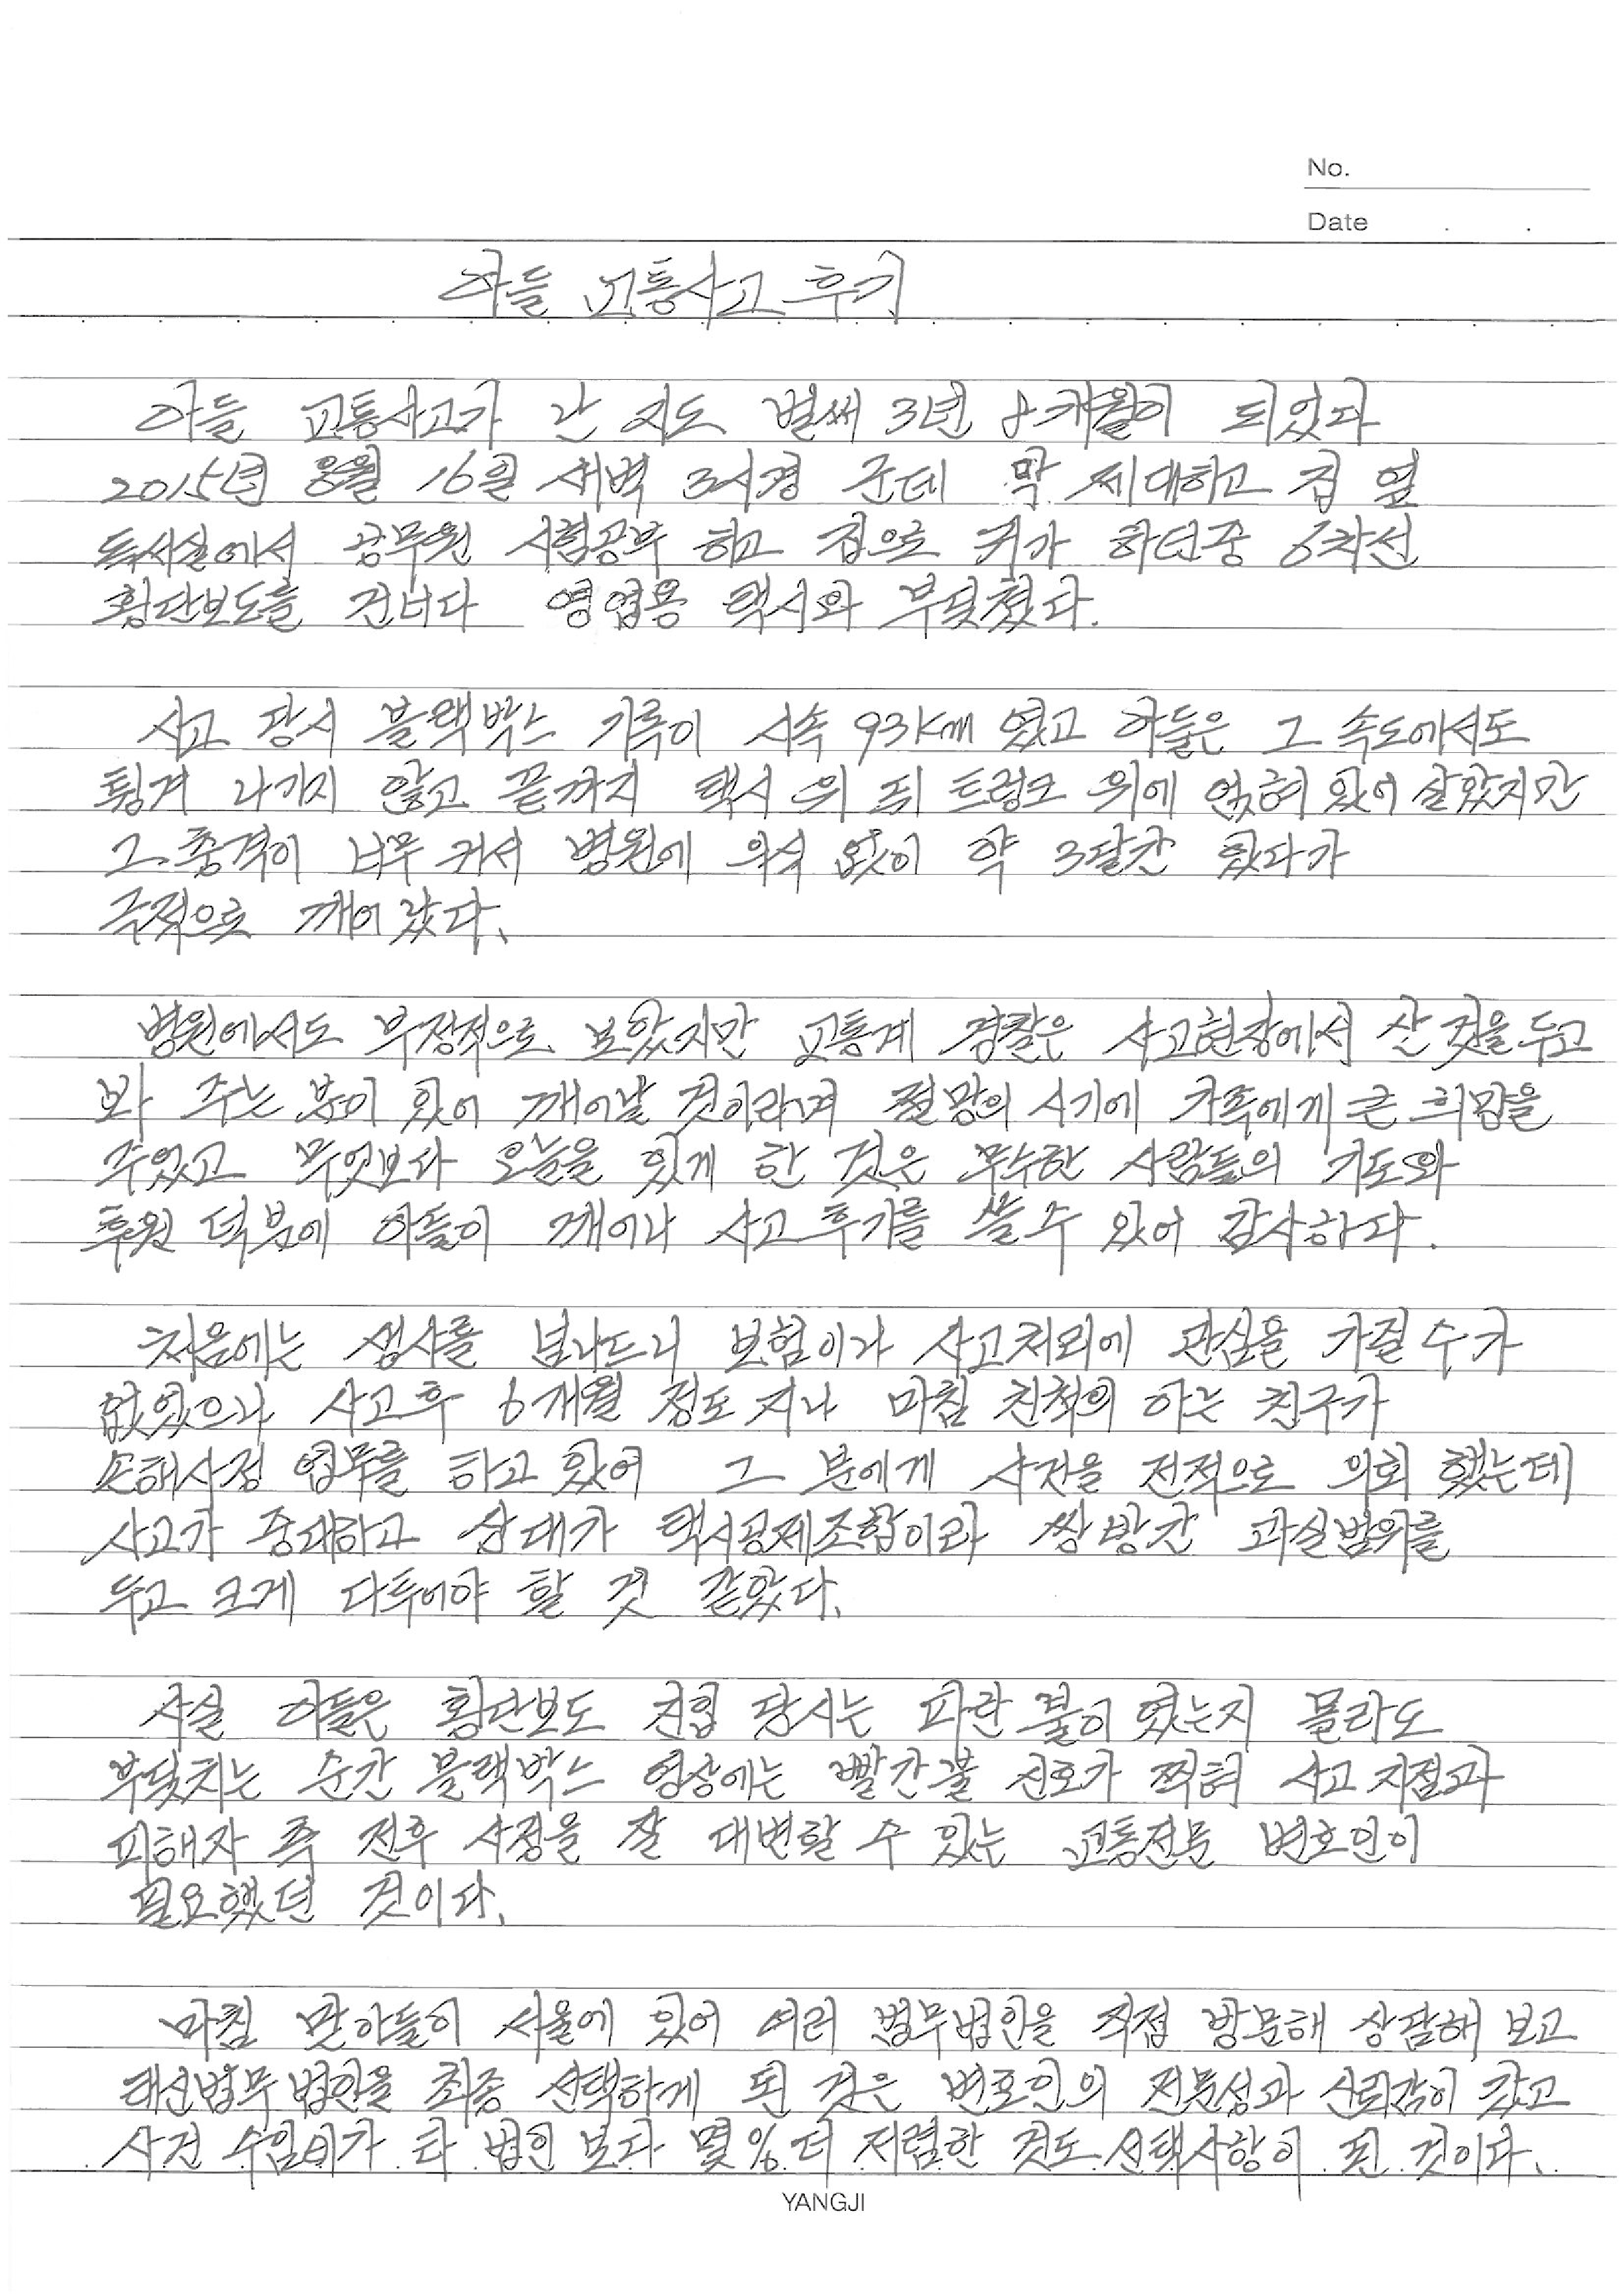 No.
Date . .
아들 교통사고 후기
아들 교통사고가 난 지도 벌써 3년 8개월이 되었다
2015년 8월 16일 새벽 3시경 군데 막 제대하고 집 옆
독서실에서 공무원 시험공부 하고 집으로 귀가 하던중 6차선
횡단보도를 건너다 영업용 택시와 부딪쳤다.
사고 당시 블랙박스 기록이 시속 93km 였고 아들은 그 속도에서도
튕겨 나가지 않고 끝까지 택시 위 뒤 트렁크 위에 얹혀 있어 살았지만
그 충격이 너무 커서 병원에 의식 없이 약 3달간 있다가
극적으로 깨어났다.
병원에서도 부정적으로 보았지만 교통계 경찰은 사고현장에서 산 것을 두고
봐 주는 분이 있어 깨어날 것이라며 절망의 시기에 가족에게 큰 희망을
주었고 무엇보다 오늘을 있게 한 것은 무수한 사람들의 기도와
후원 덕분에 아들이 깨어나 사고 후기를 쓸 수 있어 감사하다.
처음에는 생사를 넘나드니 보험이나 사고처리에 관심을 가질 수가
없었으나 사고 후 6개월 정도 지나 마침 친척의 아는 친구가
손해사정 업무를 하고 있어 그 분에게 사건을 전적으로 의뢰 했는데
사고가 중대하고 상대가 택시공제조합이라 쌍방간 과실범위를
두고 크게 다투어야 할 것 같았다.
사실 아들은 횡단보도 진입 당시는 파란 불이 였는지 몰라도
부딪치는 순간 블랙박스 영상에는 빨간불 신호가 찍혀 사고 지점과
피해자 측 전후 사정을 잘 대변할 수 있는 교통전문 변호인이
필요했던 것이다.
마침 맏아들이 서울에 있어 여러 법무법인을 직접 방문해 상담해 보고
태신법무법인을 최종 선택하게 된 것은 변호인의 전문성과 신뢰감이 갔고
사건 수임비가 타 법인 보다 몇% 더 저렴한 것도 선택사항이 된 것이다.
YANGJI